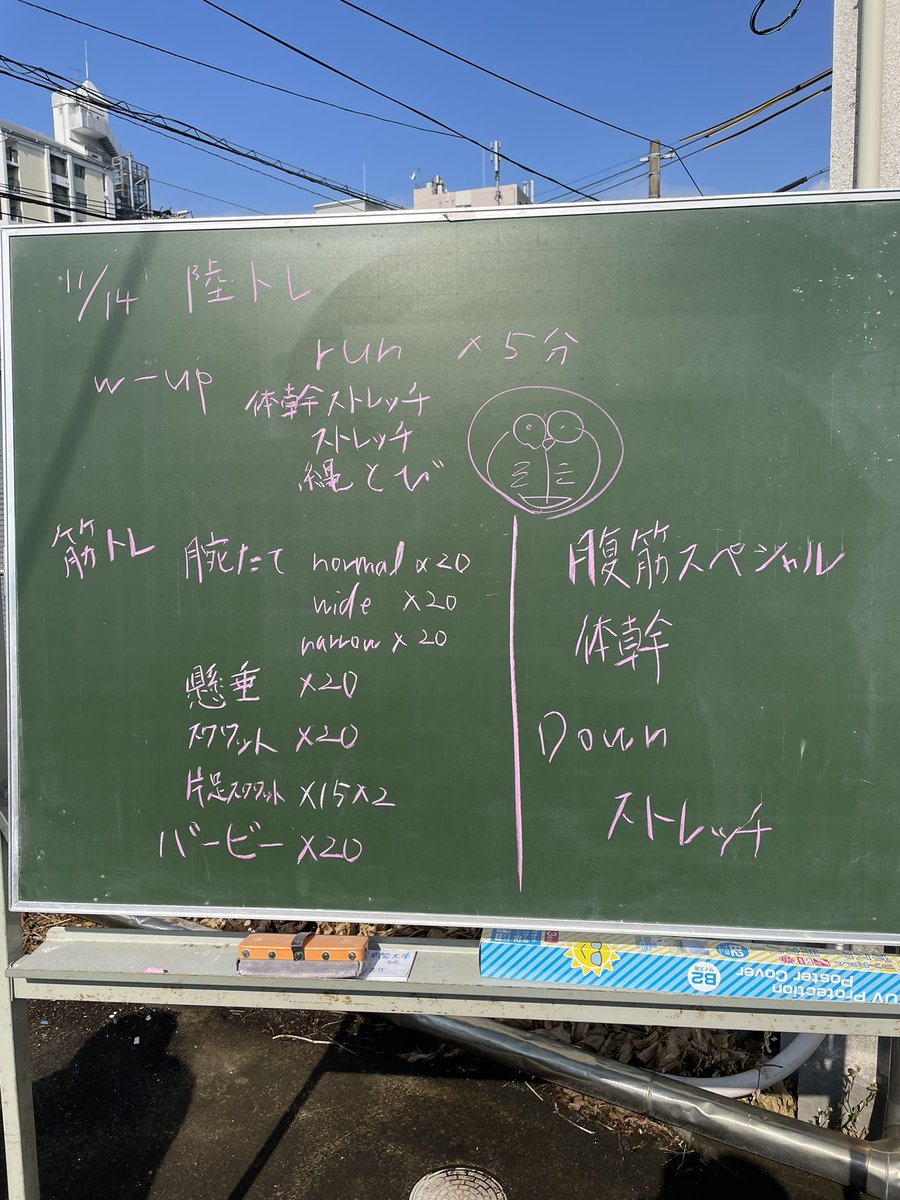 11/14 陸トレ
w-up run ×5分
体幹ストレッチ
ストレッチ
縄とび
筋トレ 腕たて normal ×20
wide ×20
narrow ×20
懸垂 ×20
スクワット ×20
片足スクワット ×15×2
バービー ×20
腹筋スペシャル
体幹
Down
ストレッチ
B2
サイズ用
UV Protection
Poster Cover